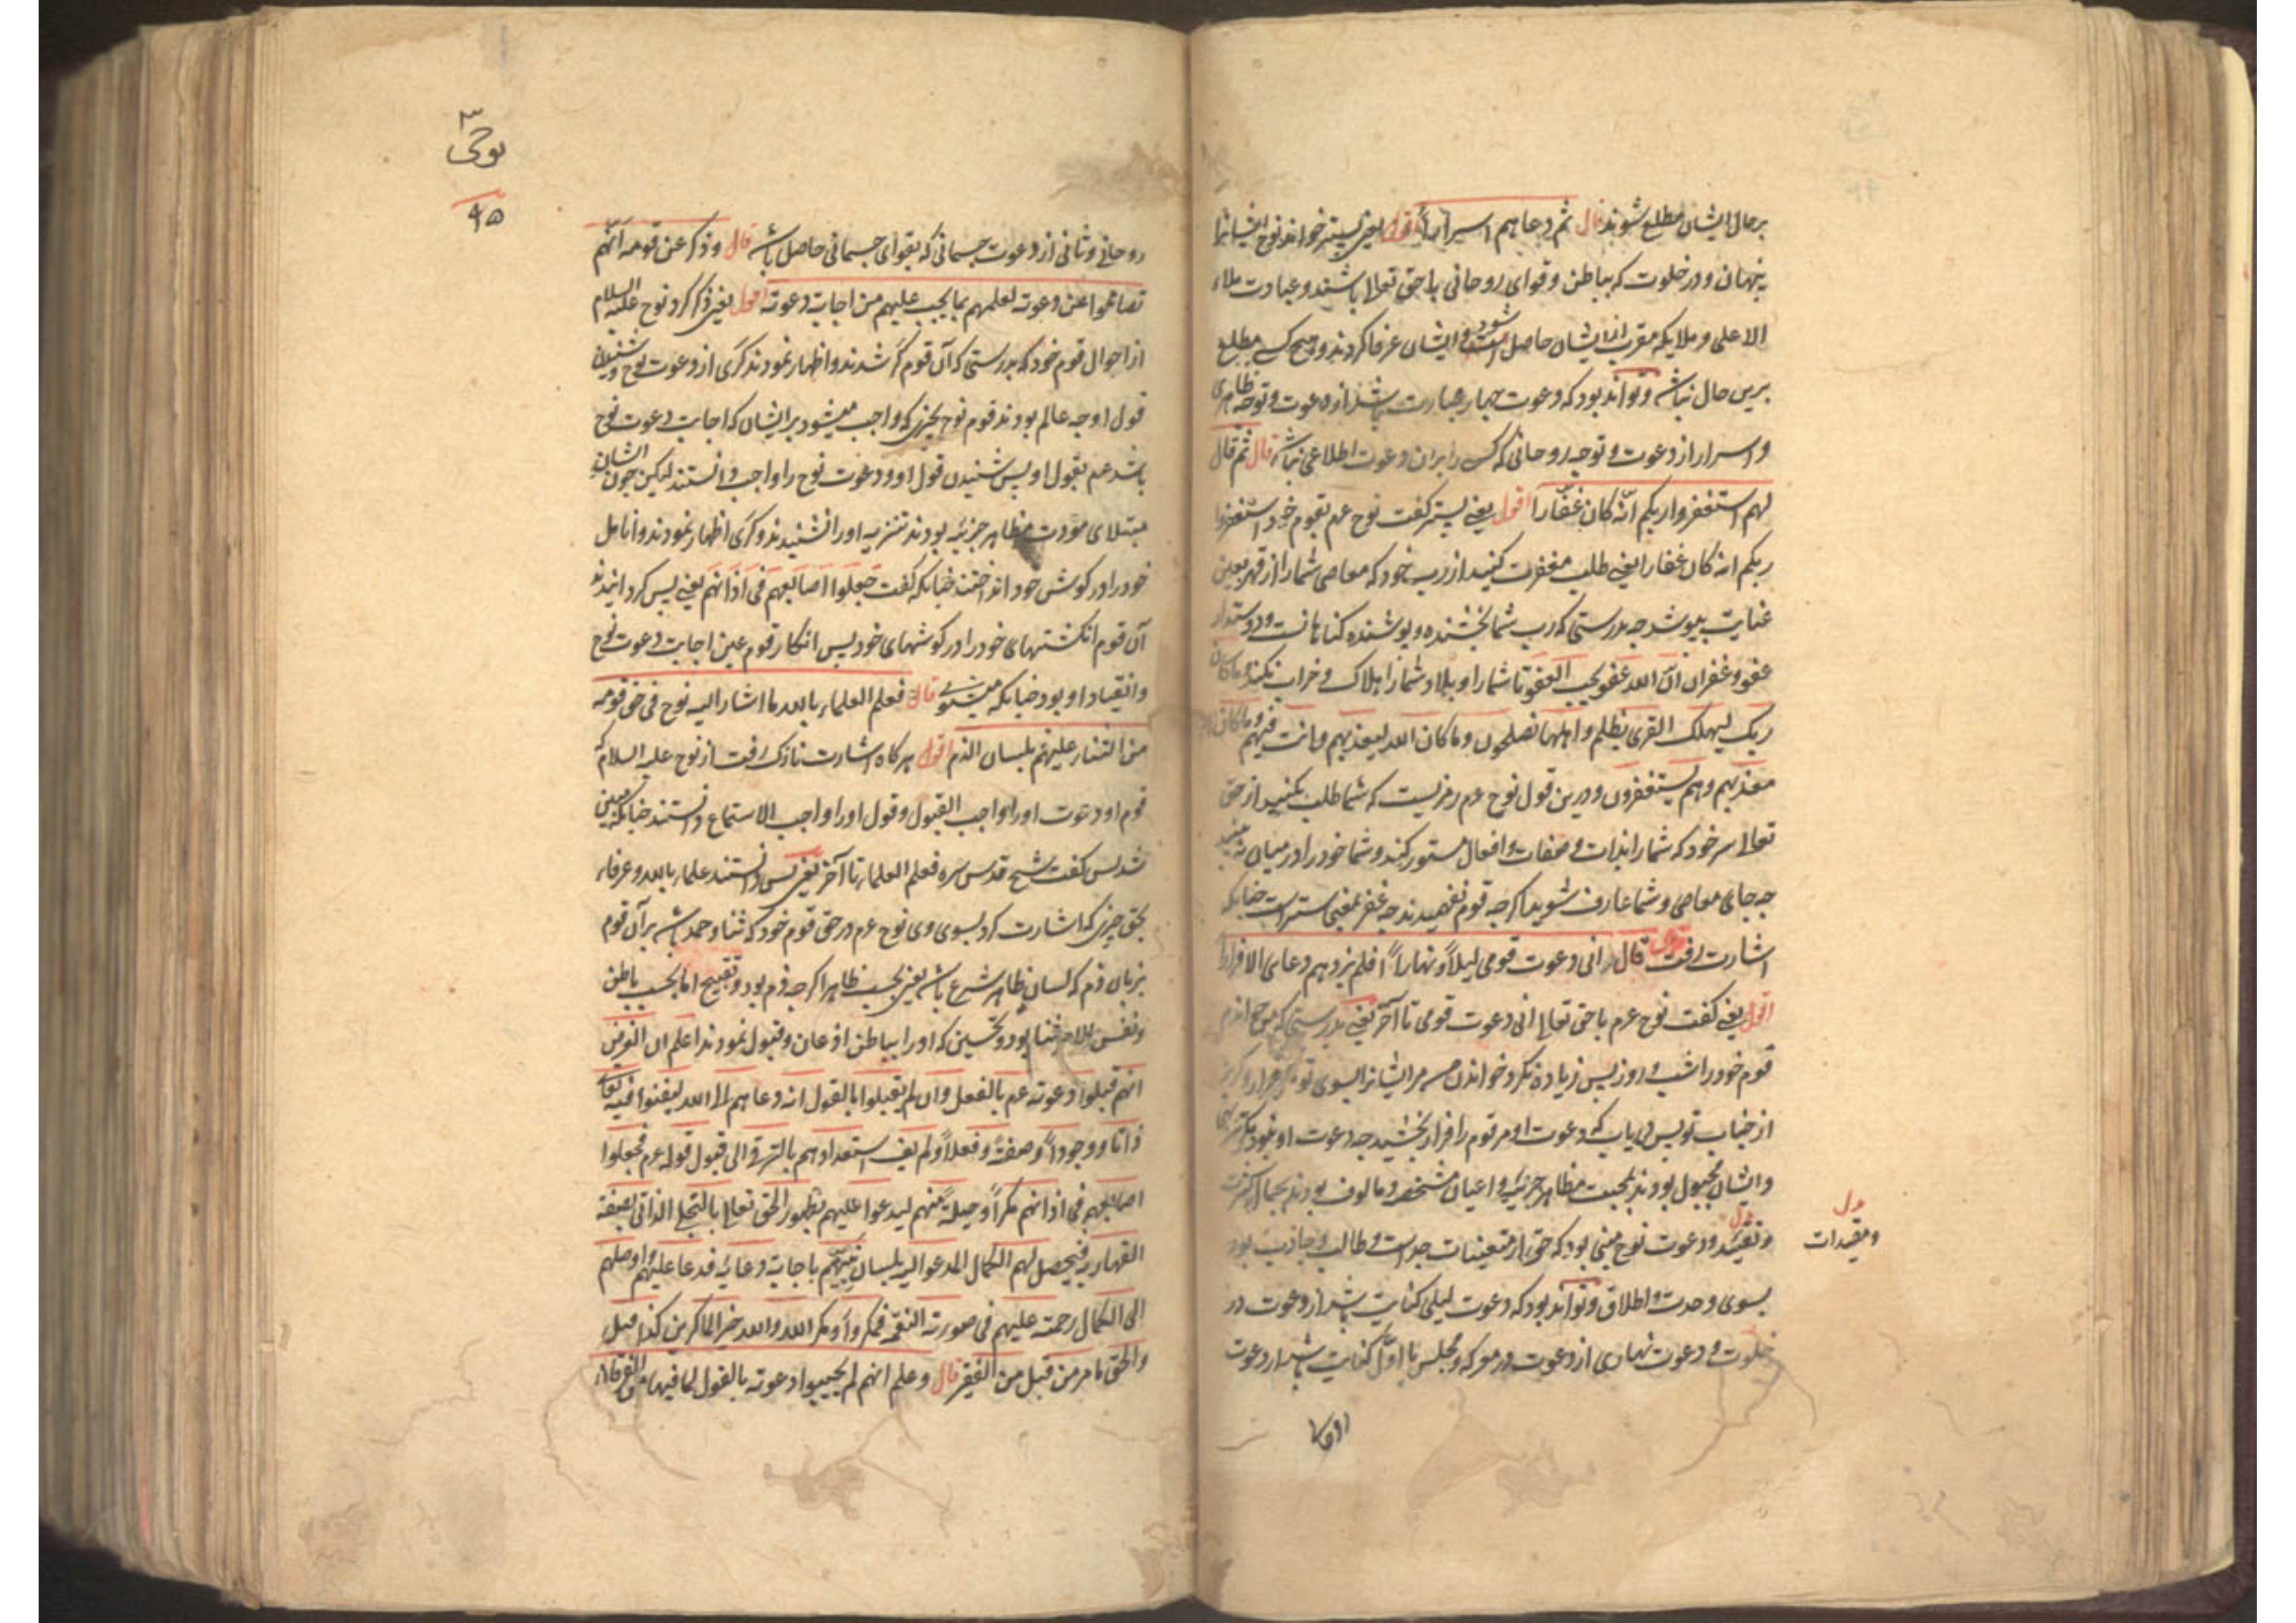 بر حال ایشان مطلع شوند قال ثم دعاهم اسرارا اقول یعنی پستر خواند نوح ایشانرا
پنهان و در خلوت که بباطن و قوای روحانی با حق تعالا باشند و عبادت ملاء
الاعلی و ملایکه مقرب از ایشان حاصل شود و ایشان عرفا کردند و هیچ کسی مطلع
برین حال نباشد و تواند بود که دعوت جهار عبارت باشد از دعوت و توجه ظاهری
و اسرار از دعوت و توجه روحانی که کسی را بران دعوت اطلاعی نباشد قال ثم قال
لهم استغفروا ربکم انه کان غفارا اقول یعنی پستر گفت نوح عم بقوم خود استغفروا
ربکم انه کان غفارا یعنی طلب مغفرت کنید از رب خود که معاصی شما را از قهر بعین
عنایت بپوشد چه بدرستی که رب شما بخشنده و پوشنده گناهانست و دوستدار
عفو و غفران ان الله عفو یحب العفو تا شما را و بلاد شما را هلاک و خراب نکند و ما کان
ربک لیهلک القری بظلم و اهلها مصلحون و ما کان الله لیعذبهم و انت فیهم و ما کان الله
معذبهم و هم یستغفرون و درین قول نوح عم رمزیست که شما طلب بکنید از حق
تعالا ستر خود که شما را بذات و صفات و افعال مستور کند و شما خود را در میان نه بینید
چه جای معاصی و شما عارف شوید اگر چه قوم نفهمیدند چه غفر بمعنی سترست چنانکه
اشارت رفت قال انی دعوت قومی لیلاً و نهاراً فلم یزدهم دعای الا فرارا
اقول یعنی گفت نوح عم با حق تعالا انی دعوت قومی تا آخر یعنی بدرستی که من خواندم
قوم خود را شب و روز پس زیاده نکرد خواندن من مر ایشانرا بسوی تو مگر فرار و گریز
از جناب تو پس دریاب که دعوت او مر قوم را فرار بخشید چه دعوت او بود بتنزیهی
و ایشان مجبول بودند بمحبت مظاهر جزئیه و اعیان مشخصه و مالوف بودند بجمال کثرت
و تقید و دعوت نوح مبنی بود که حق از متعینات جداست و طالب و جاذب بود
ومقیدات
بسوی وحدت و اطلاق و تواند بود که دعوت لیلی کنایت باشد از دعوت در
خلوت و دعوت نهاری از دعوت در معرکه و مجلس یا اول کنایت باشد از دعوت
نوحی
۹۵
روحانی و ثانی از دعوت جسمانی که بقوای جسمانی حاصل باشد قال و ذکر عن قومه انهم
تصامموا عن دعوته لعلمهم بما یجب علیهم من اجابت دعوته اقول یعنی ذکر کرد نوح علیه السلام
از احوال قوم خود که بدرستی که آن قوم کر شدند و اظهار نمودند کری از دعوت نوح و شنیدن
قول او چه عالم بودند قوم نوح بچیزی که واجب میشود بر ایشان که اجابت دعوت نوح
باشد عم بقبول او پس شنیدن قول او و دعوت نوح را واجب دانستند لیکن چون ایشان
مبتلای مودت مظاهر جزئیه بودند تنزیه او را نشنیدند و کری اظهار نمودند و انامل
خود را در گوش خود انداختند چنانکه گفت جعلوا اصابعهم فی اذانهم یعنی پس گردانیدند
آن قوم انگشتهای خود را در گوشهای خود پس انکار قوم عین اجابت دعوت نوح
و انقیاد او بود چنانکه میشنوی قال فعلم العلماء بالله ما اشار الیه نوح فی حق قومه
من الثناء علیهم بلسان الذم اقول هر گاه اشارت نازک رفت از نوح علیه السلام که
قوم او دعوت او را واجب القبول و قول او را واجب الاستماع دانستند چنانکه مبین
شد پس گفت شیخ قدس سره فعلم العلماء تا آخر یعنی پس دانستند علماء بالله و عرفاء
بحق چیزی که اشارت کرد بسوی وی نوح عم در حق قوم خود که ثنا و حمد باشد بر آن قوم
بزبان ذم که لسان ظاهر شرع باشد یعنی بحسب ظاهر اگر چه ذم بود و تقبیح اما بحسب باطن
و نفس الامر ثنا بود و تحسین که او را بباطن اذعان و قبول نمودند اعلم ان الغرض
انهم قبلوا دعوته عم بالفعل و ان لم یقبلوا بالقول انه دعاهم الی الله لیفنوا فیه تعالی
ذاتا و وجوداً و صفةً و فعلاً و لم یف استعدادهم بالترقی الی قبول قوله عم فجعلوا
اصابعهم فی اذانهم مکراً و حیلةً منهم لیدعوا علیهم بظهور الحق تعالا بالتجلی الذاتی بصفة
القهاریه فیحصل لهم الکمال المدعو الیه بلسان نبیهم باجابت دعائه فدعا علیهم و اوصلهم
الی الکمال رحمة علیهم فی صورته النقمه فمکروا و مکر الله و الله خیر الماکرین کذا قیل
و الحق ما مر من قبل من الفقیر قال و علم انهم لم یجیبوا دعوته بالقول لما فیها من الفرقان